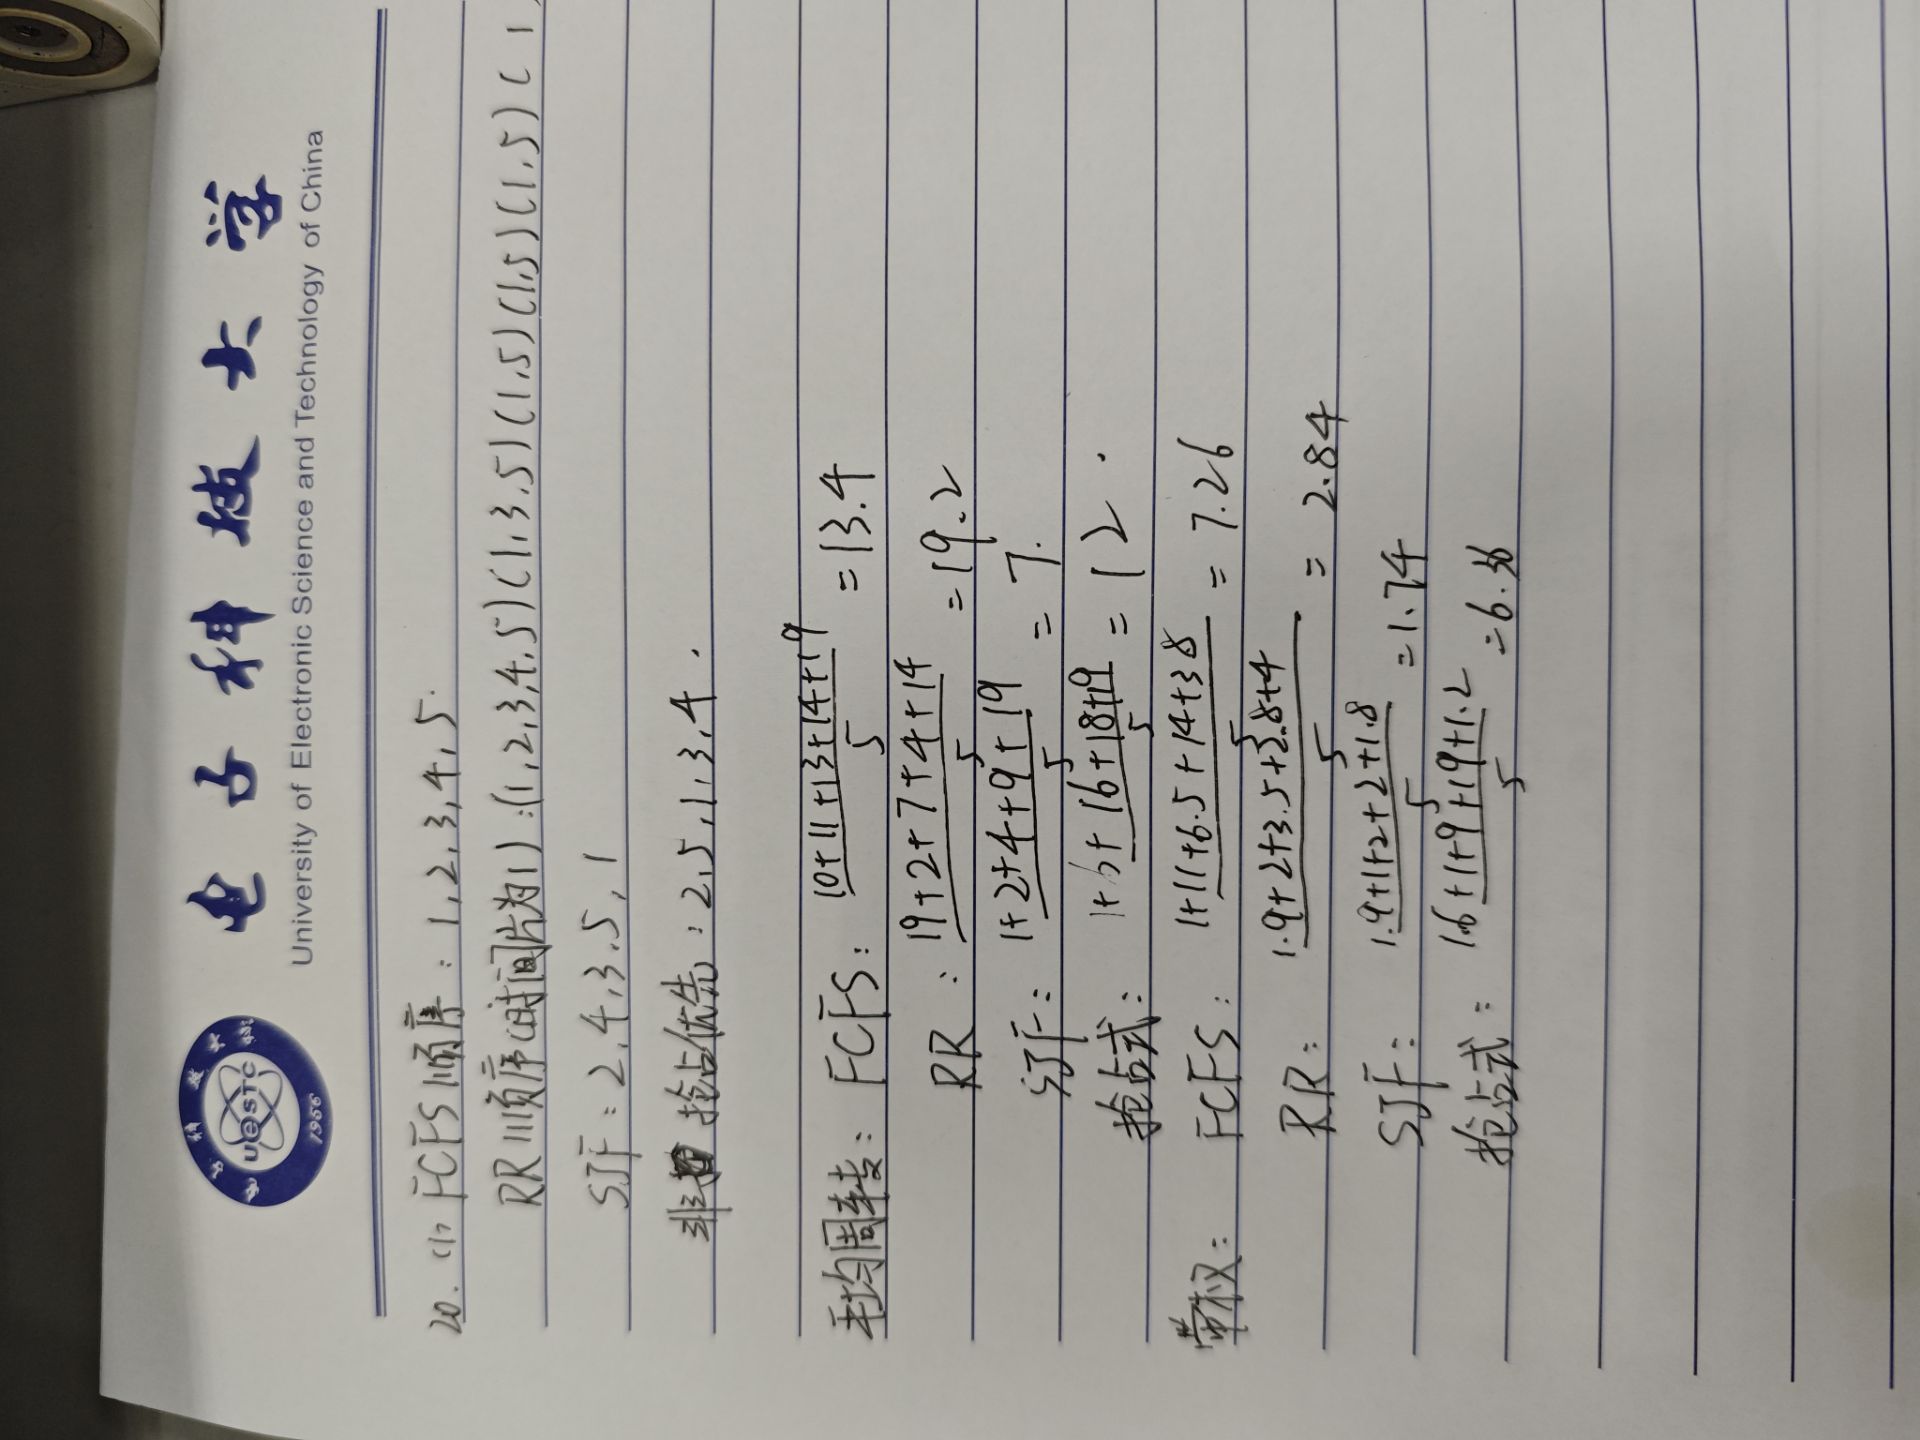 电子科技大学
University of Electronic Science and Technology of China
UESTC
1956
20. (1), FCFS顺序: 1, 2, 3, 4, 5.
RR顺序(时间片为1): (1, 2, 3, 4, 5) (1, 3, 5) (1, 5) (1, 5) (1, 5) (1, 5) (1
SJF: 2, 4, 3, 5, 1
非抢占优先: 2, 5, 1, 3, 4.
平均周转: FCFS: 10+11+13+14+19 / 5 = 13.4
RR: 19+2+7+4+14 / 5 = 19.2
SJF: 1+2+4+9+19 / 5 = 7.
抢占式: 1+6+16+18+19 / 5 = 12.
带权: FCFS: 1+11+6.5+14+3.8 / 5 = 7.26
RR: 1.9+2+3.5+2.8+4 / 5 = 2.84
SJF: 1.9+1+2+2+1.8 / 5 = 1.74
抢占式: 1.6+1+9+19+1.2 / 5 = 6.36